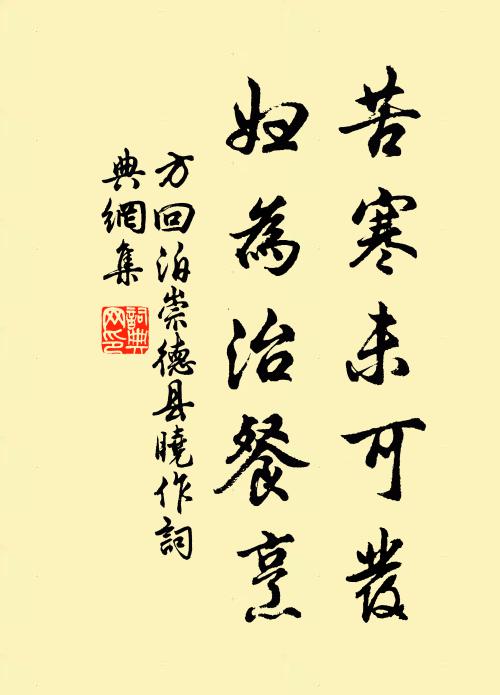 苦寒未可發
妇為治餐烹
方回泊崇德县曉作詞
典網集
詞典
网印